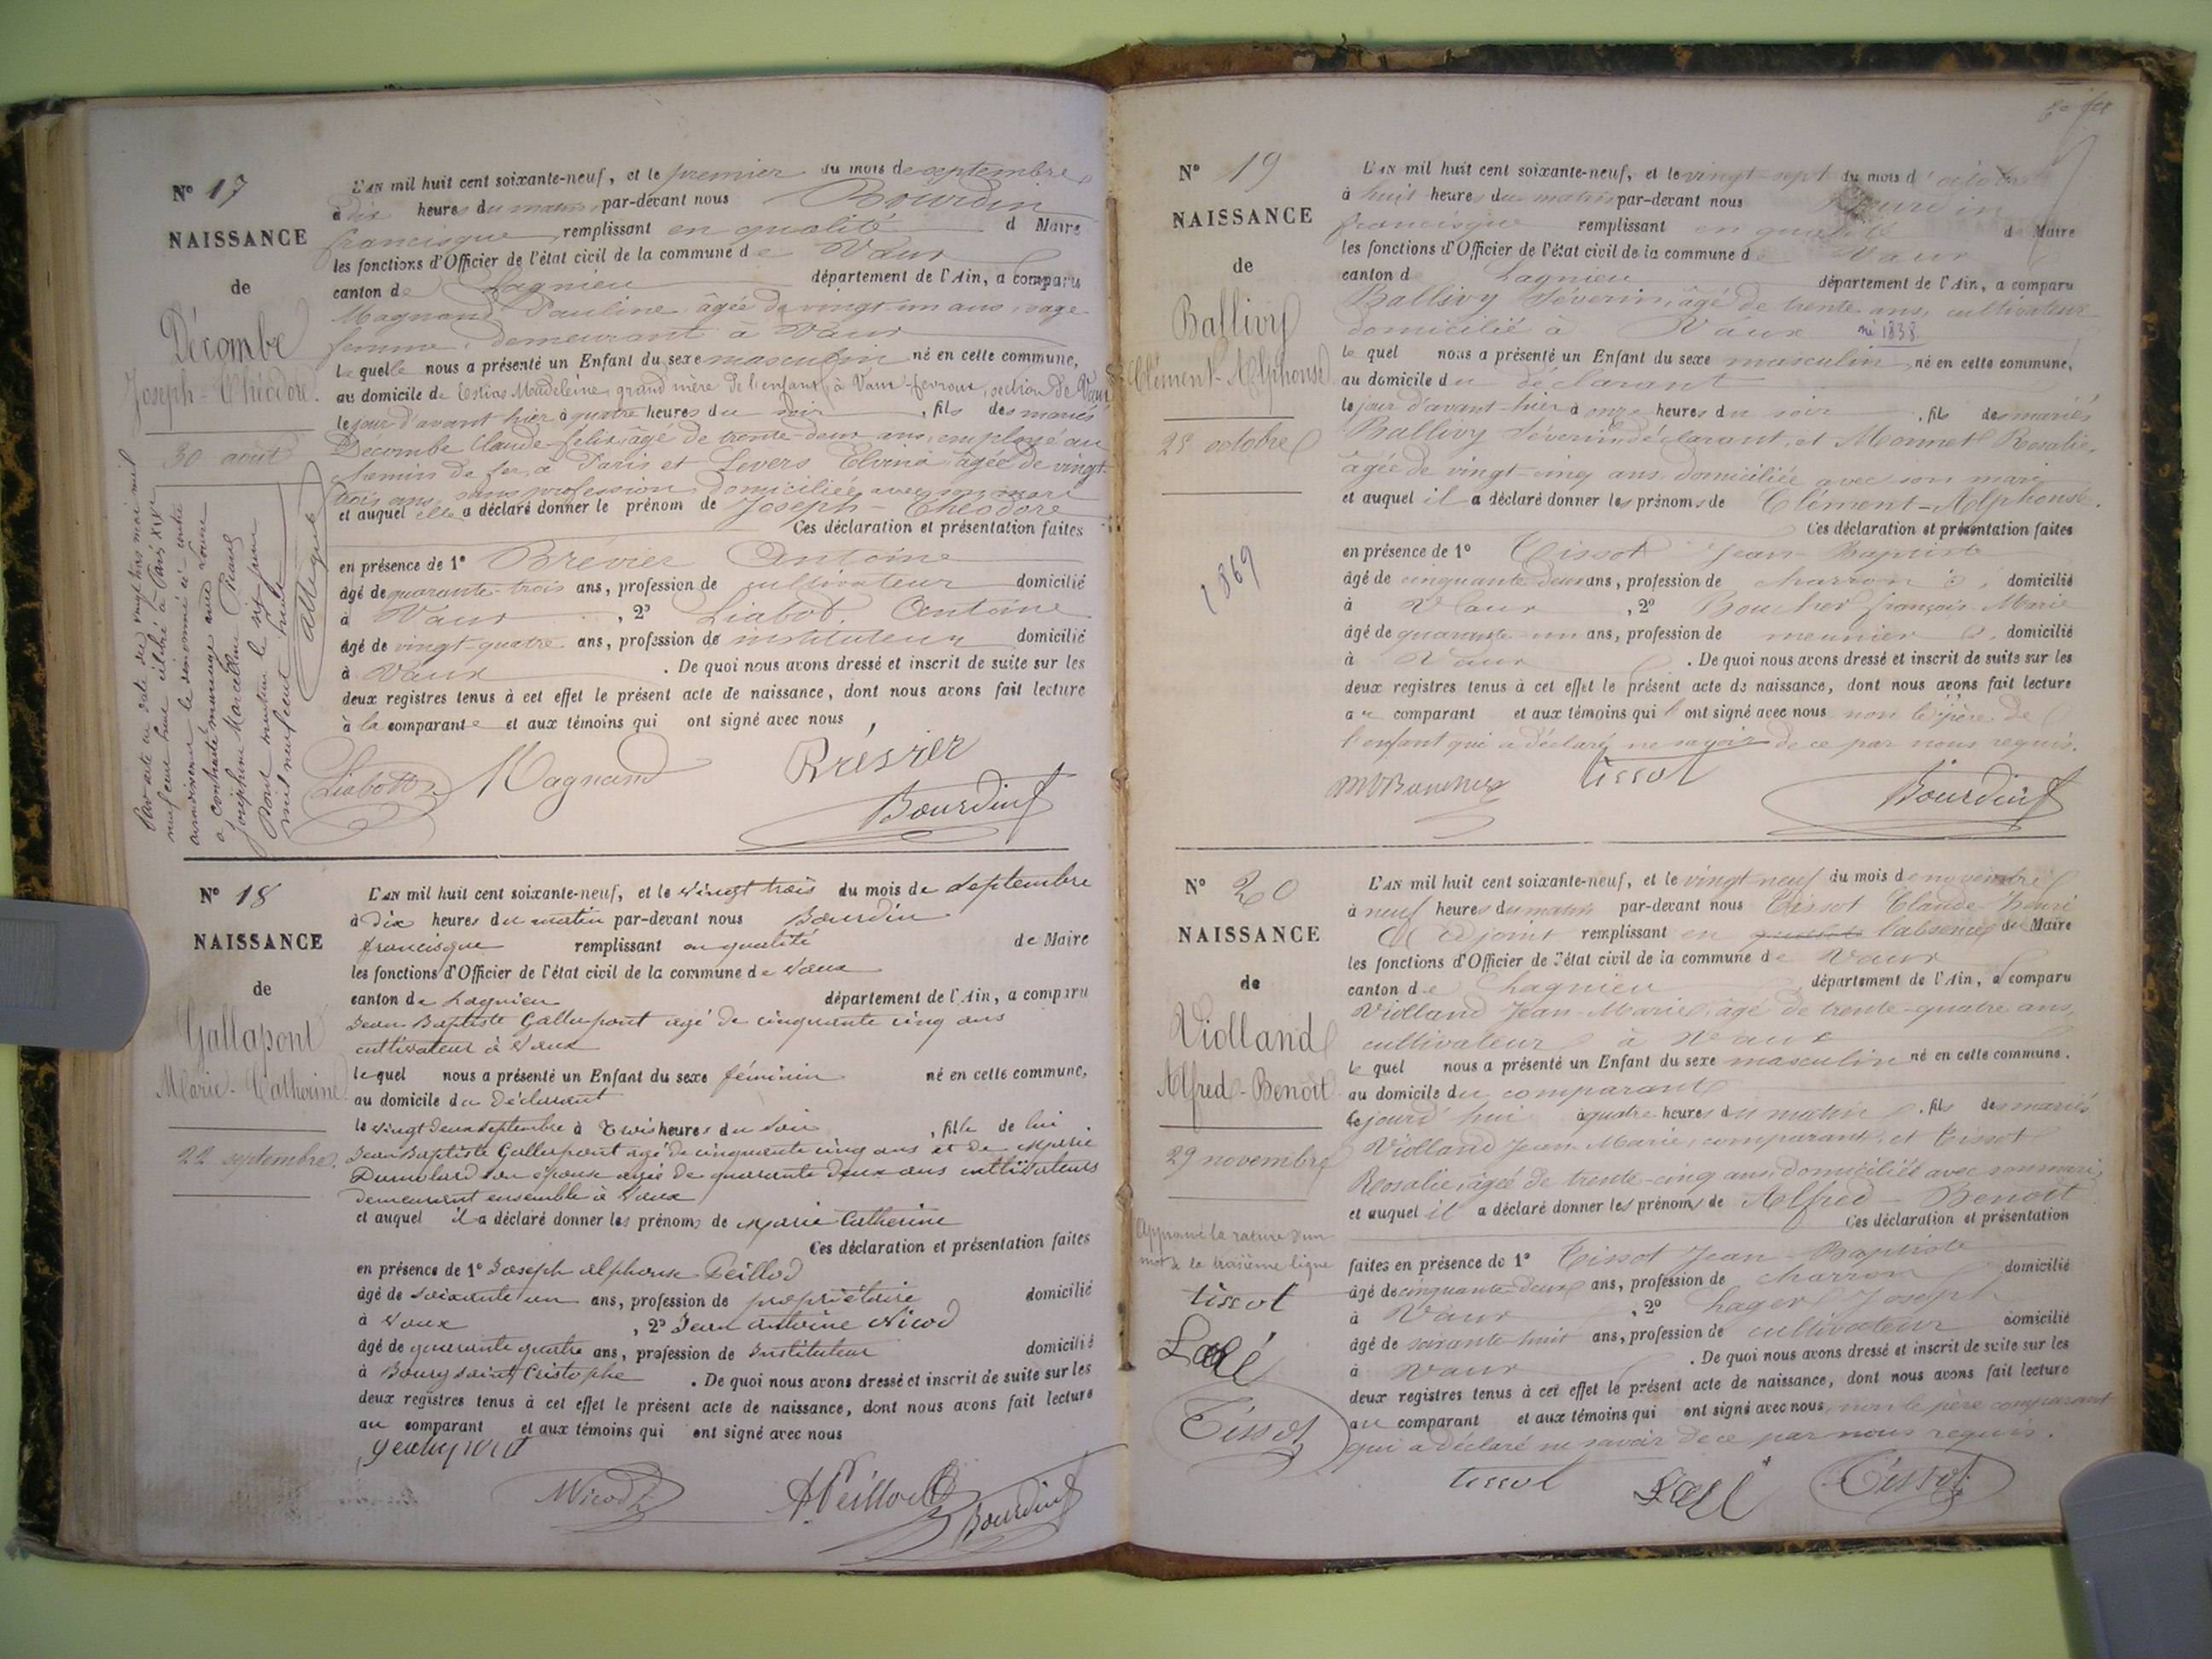 N° 17
NAISSANCE
de
Décombe
Joseph-Théodore.
30 août
Par acte en date du vingt trois mai mil
neuf cent treize célébré à Paris XIVe
arrondissement le dénommé ci-contre
a contracté mariage avec Louise
Joséphine Marcelline
Pour mention le six juin
mil neuf cent treize
L'AN mil huit cent soixante-neuf, et le premier du mois de septembre
à dix heures du matin, par-devant nous Bourdin
francisque, remplissant en qualité d Maire
les fonctions d'Officier de l'état civil de la commune de Vaux
canton de Lagnieu département de l'Ain, a comparu
Magnand Pauline, âgée de vingt-un ans, sage
femme, demeurant à Vaux
laquelle nous a présenté un Enfant du sexe masculin né en cette commune,
au domicile de Estios Madeleine, grand'mère de l'enfant, à Vaux-fevroux, section de Vaux
le jour d'avant hier à quatre heures du soir, fils des mariés
Décombe Claude-felix, âgé de trente-deux ans, employé au
chemin de fer, à Paris et Levers Elvina âgée de vingt-
trois ans, sans profession, domiciliée avec son mari
et auquel elle a déclaré donner le prénom de Joseph-Théodore
Ces déclaration et présentation faites
en présence de 1° Brévier Antoine
âgé de quarante-trois ans, profession de cultivateur domicilié
à Vaux, 2° Liabot Antoine
âgé de vingt-quatre ans, profession de instituteur domicilié
à Vaux. De quoi nous avons dressé et inscrit de suite sur les
deux registres tenus à cet effet le présent acte de naissance, dont nous avons fait lecture
à la comparante et aux témoins qui ont signé avec nous
Liabot Magnand Brévier
Bourdin
N° 18
NAISSANCE
de
Gallapont
Marie-Catherine
22 septembre.
L'AN mil huit cent soixante-neuf, et le vingt trois du mois de septembre
à dix heures du matin par-devant nous Bourdin
francisque remplissant en qualité de Maire
les fonctions d'Officier de l'état civil de la commune de Vaux
canton de Lagnieu département de l'Ain, a comparu
Jean Baptiste Gallapont agé de cinquante cinq ans
cultivateur à Vaux
lequel nous a présenté un Enfant du sexe féminin né en cette commune,
au domicile du Déclarant
le vingt deux septembre à Trois heures du soir, fille de lui
Jean Baptiste Gallapont agé de cinquante cinq ans et de Marie
Dumolard son épouse agée de quarante deux ans cultivateurs
demeurant ensemble à Vaux
et auquel il a déclaré donner les prénoms de Marie Catherine
Ces déclaration et présentation faites
en présence de 1° Joseph Alphonse Peillod
âgé de soixante un ans, profession de propriétaire domicilié
à Vaux, 2° Jean Antoine Nicod
âgé de quarante quatre ans, profession de Instituteur domicilié
à Bourg Saint Cristophe. De quoi nous avons dressé et inscrit de suite sur les
deux registres tenus à cet effet le présent acte de naissance, dont nous avons fait lecture
au comparant et aux témoins qui ont signé avec nous
Nicod A Peillod Bourdin
N° 19
NAISSANCE
de
Ballivy
Clément-Alphonse
25 octobre
1869
L'AN mil huit cent soixante-neuf, et le vingt-sept du mois d'octobre
à huit heures du matin par-devant nous Bourdin
francisque remplissant en qualité de Maire
les fonctions d'Officier de l'état civil de la commune de Vaux
canton de Lagnieu département de l'Ain, a comparu
Ballivy Séverin, âgé de trente ans, cultivateur
domicilié à Vaux né 1838
lequel nous a présenté un Enfant du sexe masculin, né en cette commune,
au domicile du déclarant
le jour d'avant-hier à onze heures du soir, fils des mariés
Ballivy Séverin, déclarant, et Monnet Rosalie,
âgée de vingt-cinq ans, domiciliée avec son mari
et auquel il a déclaré donner les prénoms de Clément-Alphonse.
Ces déclaration et présentation faites
en présence de 1° Tissot Jean-Baptiste
âgé de cinquante-deux ans, profession de charron, domicilié
à Vaux, 2° Boucher françois-Marie
âgé de quarante-un ans, profession de meunier, domicilié
à Vaux. De quoi nous avons dressé et inscrit de suite sur les
deux registres tenus à cet effet le présent acte de naissance, dont nous avons fait lecture
au comparant et aux témoins qui ont signé avec nous non le père de
l'enfant qui a déclaré ne savoir de ce par nous requis.
tissot Bourdin
N° 20
NAISSANCE
de
Violland
Alfred-Benoit
29 novembre
Approuvé la rature d'un
mot à la troisième ligne
tissot
Tissot
L'AN mil huit cent soixante-neuf, et le vingt neuf du mois de novembre
à neuf heures du matin par-devant nous Tissot Claude-henri
Adjoint remplissant en qualité l'absence du Maire
les fonctions d'Officier de l'état civil de la commune de Vaux
canton de Lagnieu, département de l'Ain, a comparu
Violland Jean-Marie, âgé de trente-quatre ans,
cultivateur à Vaux
lequel nous a présenté un Enfant du sexe masculin né en cette commune.
au domicile du comparant
cejourd'hui à quatre heures du matin, fils des mariés
Violland Jean-Marie, comparant, et Tissot
Rosalie, âgée de trente-cinq ans, domiciliée avec son mari,
et auquel il a déclaré donner les prénoms de Alfred-Benoit
Ces déclaration et présentation
faites en présence de 1° Tissot Jean-Baptiste
âgé de cinquante-deux ans, profession de charron domicilié
à Vaux, 2° Lager Joseph
âgé de soixante huit ans, profession de cultivateur domicilié
à Vaux. De quoi nous avons dressé et inscrit de suite sur les
deux registres tenus à cet effet le présent acte de naissance, dont nous avons fait lecture
au comparant et aux témoins qui ont signé avec nous, non le père comparant
qui a déclaré ne savoir de ce par nous requis.
tissot Tissot